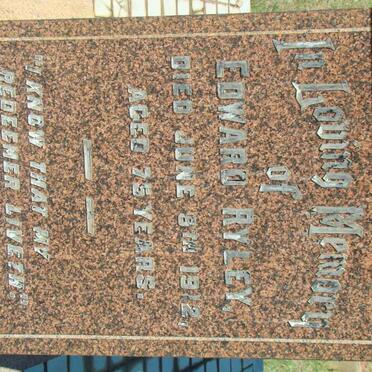 In Loving Memory
of
EDWARD RYLEY,
DIED JUNE 8TH 1912,
AGED 75 YEARS.
"I KNOW THAT MY
REDEEMER LIVETH."